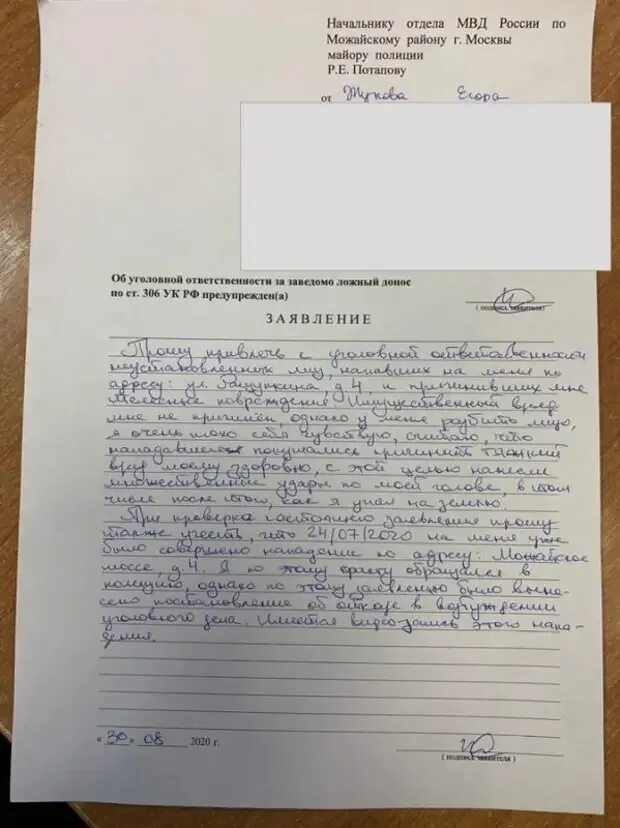 Начальнику отдела МВД России по
Можайскому району г. Москвы
майору полиции
Р.Е. Потапову
от Жукова Егора
Об уголовной ответственности за заведомо ложный донос
по ст. 306 УК РФ предупрежден(а)
( подпись заявителя)
ЗАЯВЛЕНИЕ
Прошу привлечь к уголовной ответственности
неустановленных лиц, напавших на меня по
адресу: ул. Гашукина, д. 4, и причинивших мне
телесные повреждения. Имущественный вред
мне не причинён, однако у меня разбито лицо,
я очень плохо себя чувствую, считаю, что
нападавшие покушались причинить тяжкий
вред моему здоровью, с этой целью нанесли
множественные удары по моей голове, в том
числе после того, как я упал на землю.
При проверке настоящего заявления прошу
также учесть, что 24/07/2020 на меня уже
было совершено нападение по адресу: Можайское
шоссе, д. 4. Я по этому факту обращался в
полицию, однако по этому заявлению было выне-
сено постановление об отказе в возбуждении
уголовного дела. Имеется видео-запись этого напа-
дения.
« 30 » 08 2020 г.
( подпись заявителя )